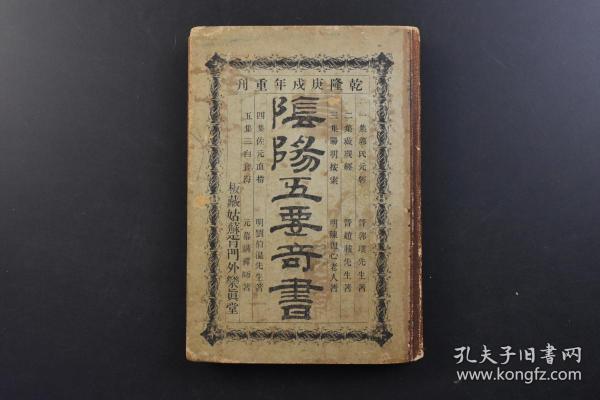 乾隆庚戍年重刊
一集郭氏元經 晉郭璞先生著
二集璇璣經 晉趙載先生著
三集陽明按索 明陳復心老人著
陰陽五要奇書
四集佐元直指 明劉伯溫先生著
五集三白寶海 元幕講禪師著
板藏姑蘇胥門外樂真堂
孔夫子旧书网
www.kongfz.com